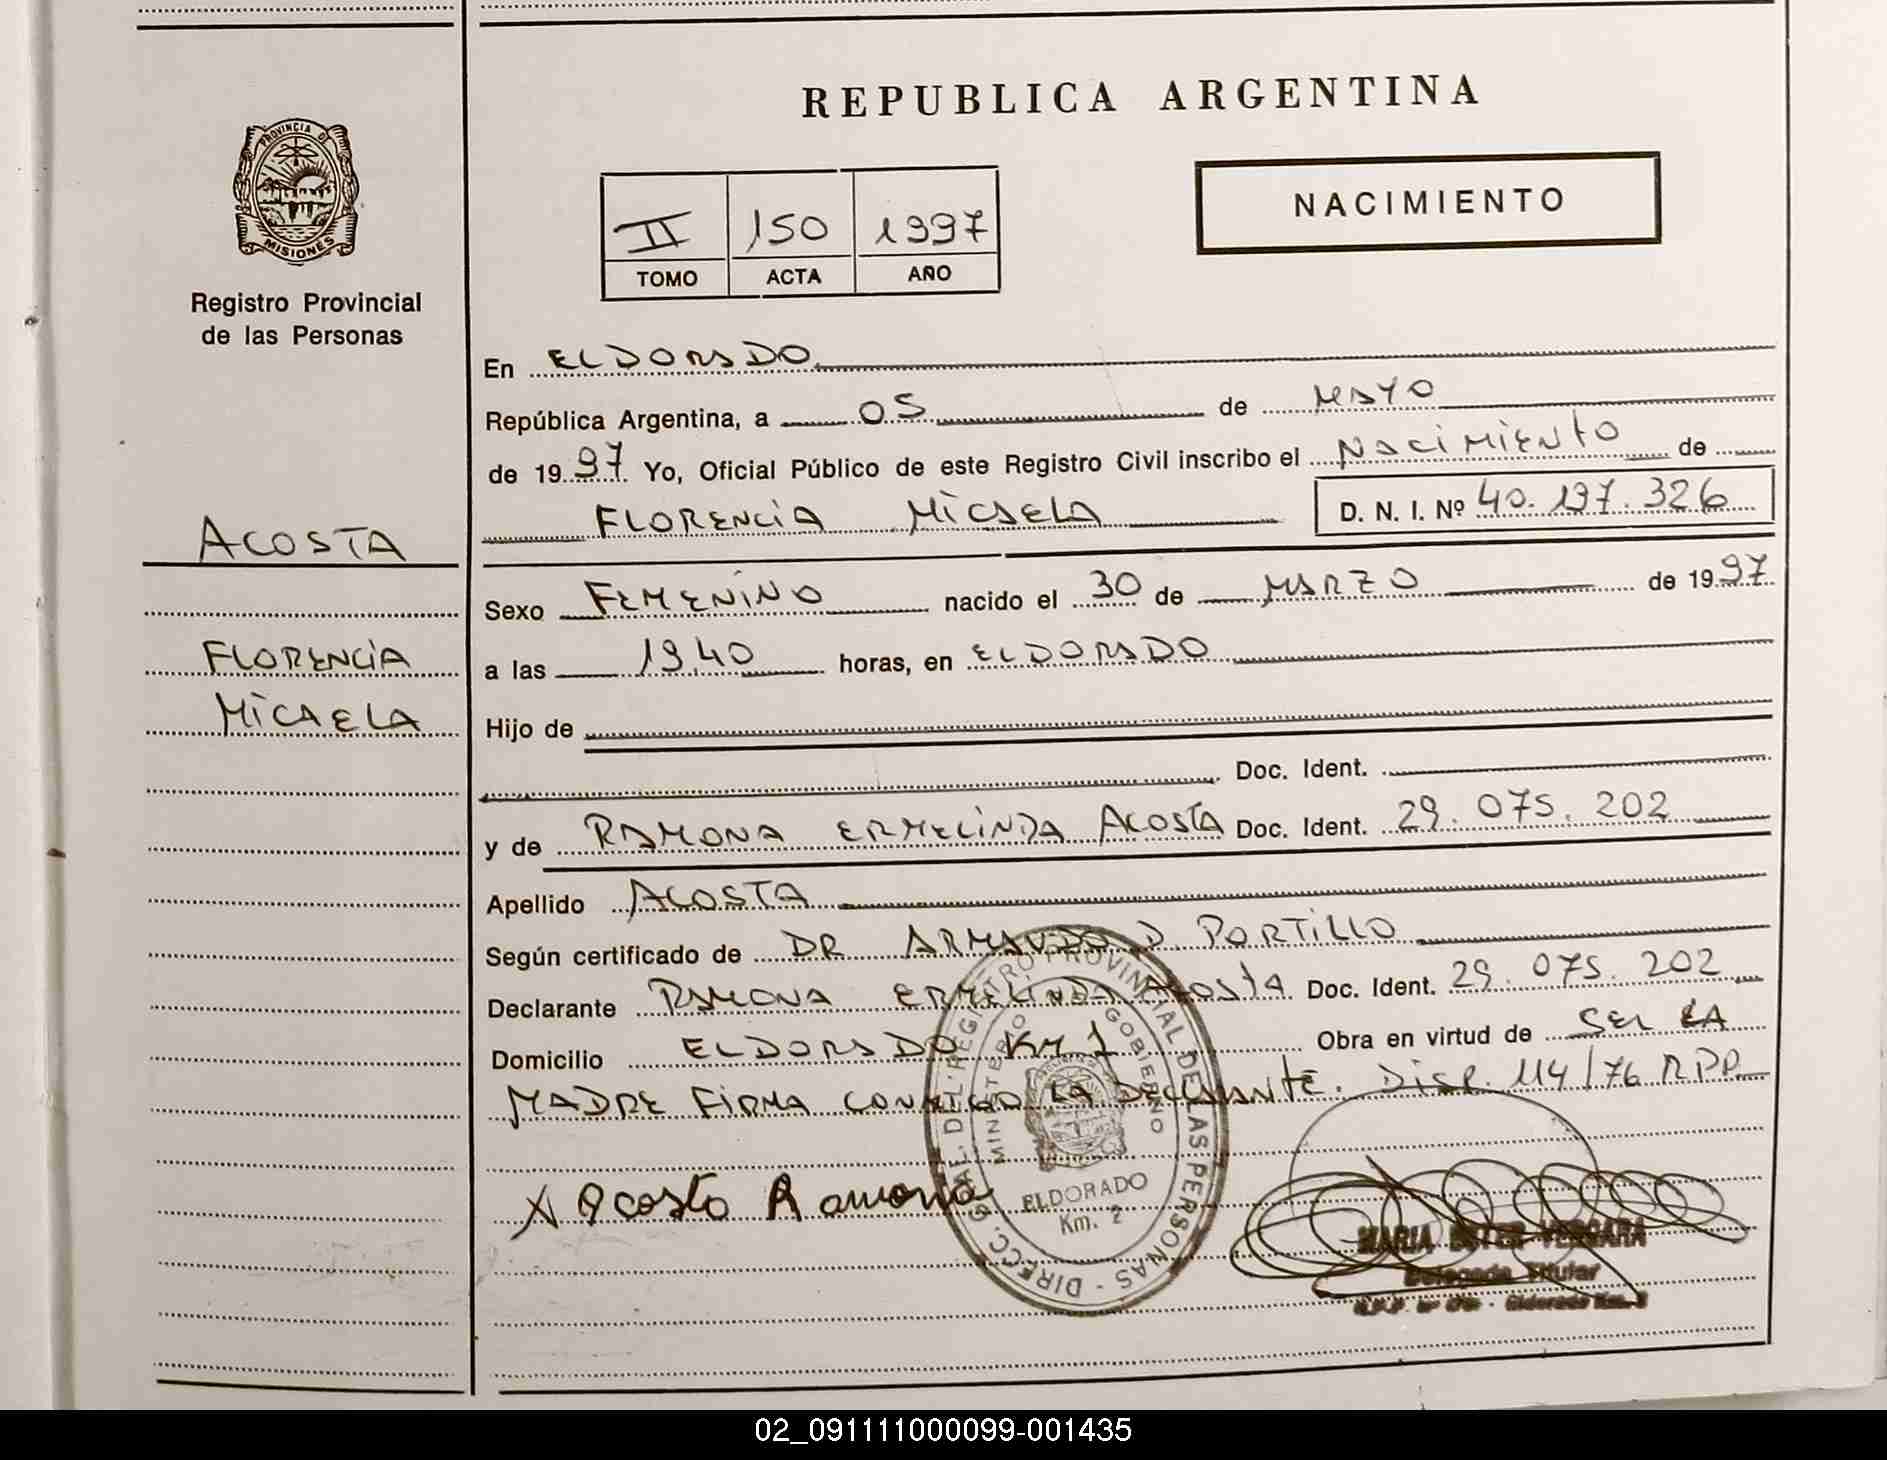 PROVINCIA DE
MISIONES
Registro Provincial
de las Personas
ACOSTA
FLORENCIA
MICAELA
REPUBLICA ARGENTINA
II 150 1997
TOMO ACTA AÑO
NACIMIENTO
En ELDORADO
República Argentina, a 05 de MAYO
de 1997 Yo, Oficial Público de este Registro Civil inscribo el NACIMIENTO de
FLORENCIA MICAELA D. N. I. Nº 40.197.326
Sexo FEMENINO nacido el 30 de MARZO de 1997
a las 19,40 horas, en ELDORADO
Hijo de
Doc. Ident.
y de RAMONA ERMELINDA ACOSTA Doc. Ident. 29.075.202
Apellido ACOSTA
Según certificado de DR ARMANDO D. PORTILLO
Declarante RAMONA ERMELINDA ACOSTA Doc. Ident. 29.075.202
Domicilio ELDORADO Km 1 Obra en virtud de SER LA
MADRE FIRMA CONMIGO LA DECLARANTE. DISP. 114/76 RPP
X Acosta Ramona
DIRECC. GRAL. DEL REGISTRO PROVINCIAL DE LAS PERSONAS -
MINISTERIO GOBIERNO
ELDORADO
Km. 2
MARIA ESTER VERGARA
Delegada Titular
Eldorado Km.
02_091111000099-001435